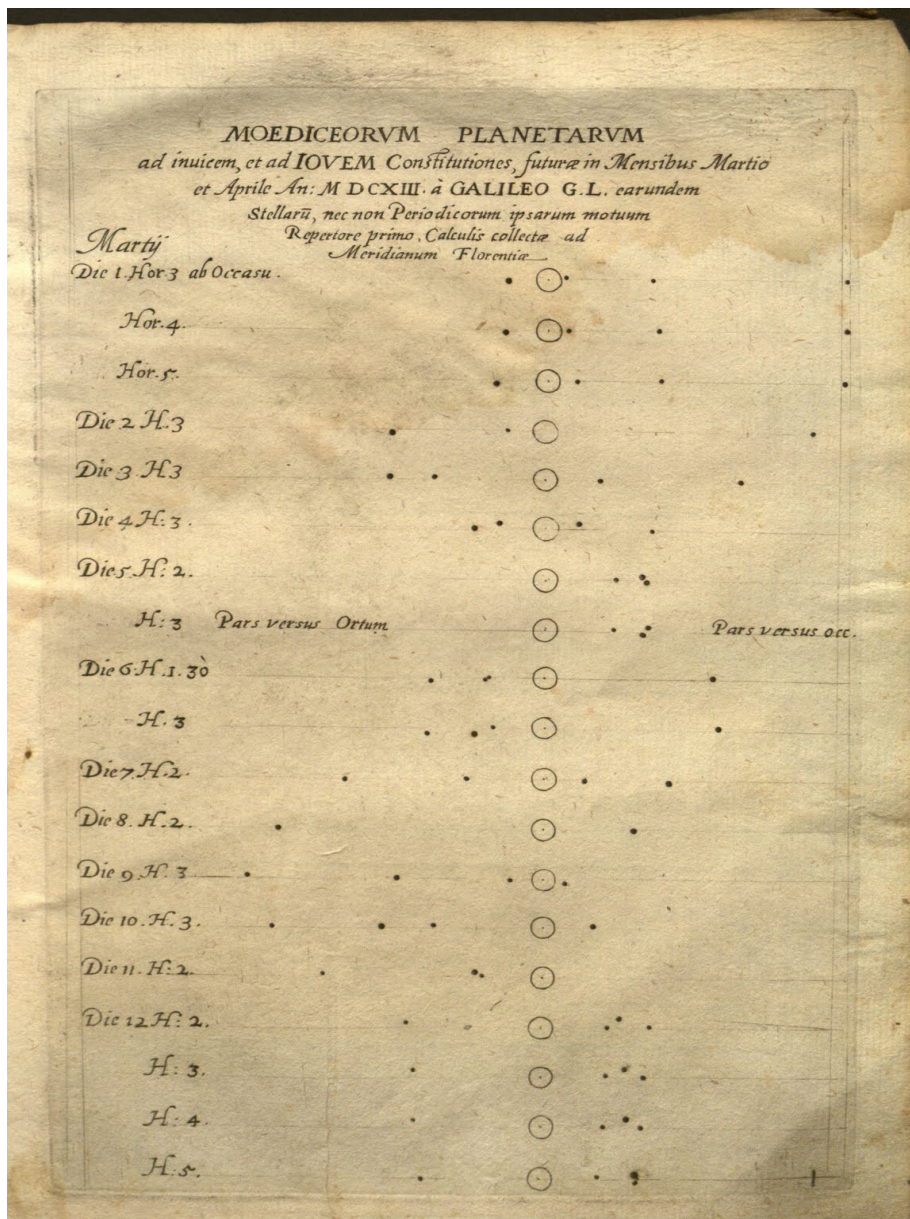 MOEDICEORVM PLANETARVM
ad inuicem, et ad IOVEM Constitutiones, futuræ in Mensibus Martio
et Aprile An: M DCXIII. à GALILEO G.L. earundem
Stellarū, nec non Periodicorum ipsarum motuum
Repertore primo, Calculis collectæ ad
Meridianum Florentiæ
Martij
Die 1. Hor. 3 ab Occasu.
Hor. 4.
Hor. 5.
Die 2 H. 3
Die 3 H 3
Die 4 H: 3.
Die 5 H: 2.
H: 3 Pars versus Ortum Pars versus occ.
Die 6 H. 1. 30
H. 3
Die 7. H. 2.
Die 8. H. 2.
Die 9. H. 3
Die 10. H. 3.
Die 11. H: 2.
Die 12 H: 2.
H: 3.
H: 4.
H: 5.